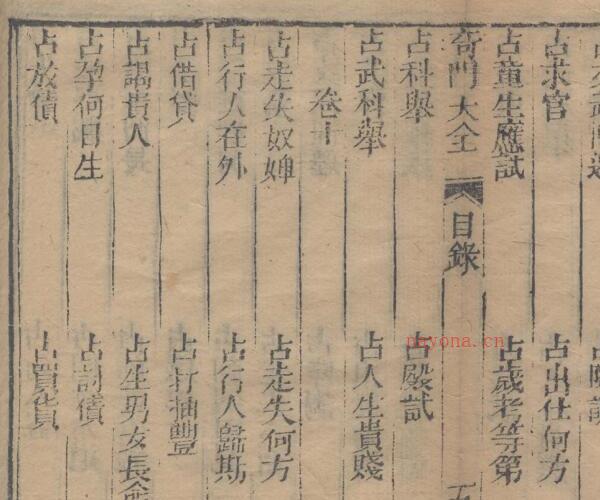 占求官　占出仕何方
占童生應試　占歲考等第
奇門大全　目錄
占科舉　占殿試
占武科舉　占人生貴賤
卷十
占走失奴婢　占走失何方
占行人在外　占行人歸期
占借貸　占打抽豐
占謁貴人　占生男女長
占孕何日生　占討債
占放債　占買貨
nayona.cn